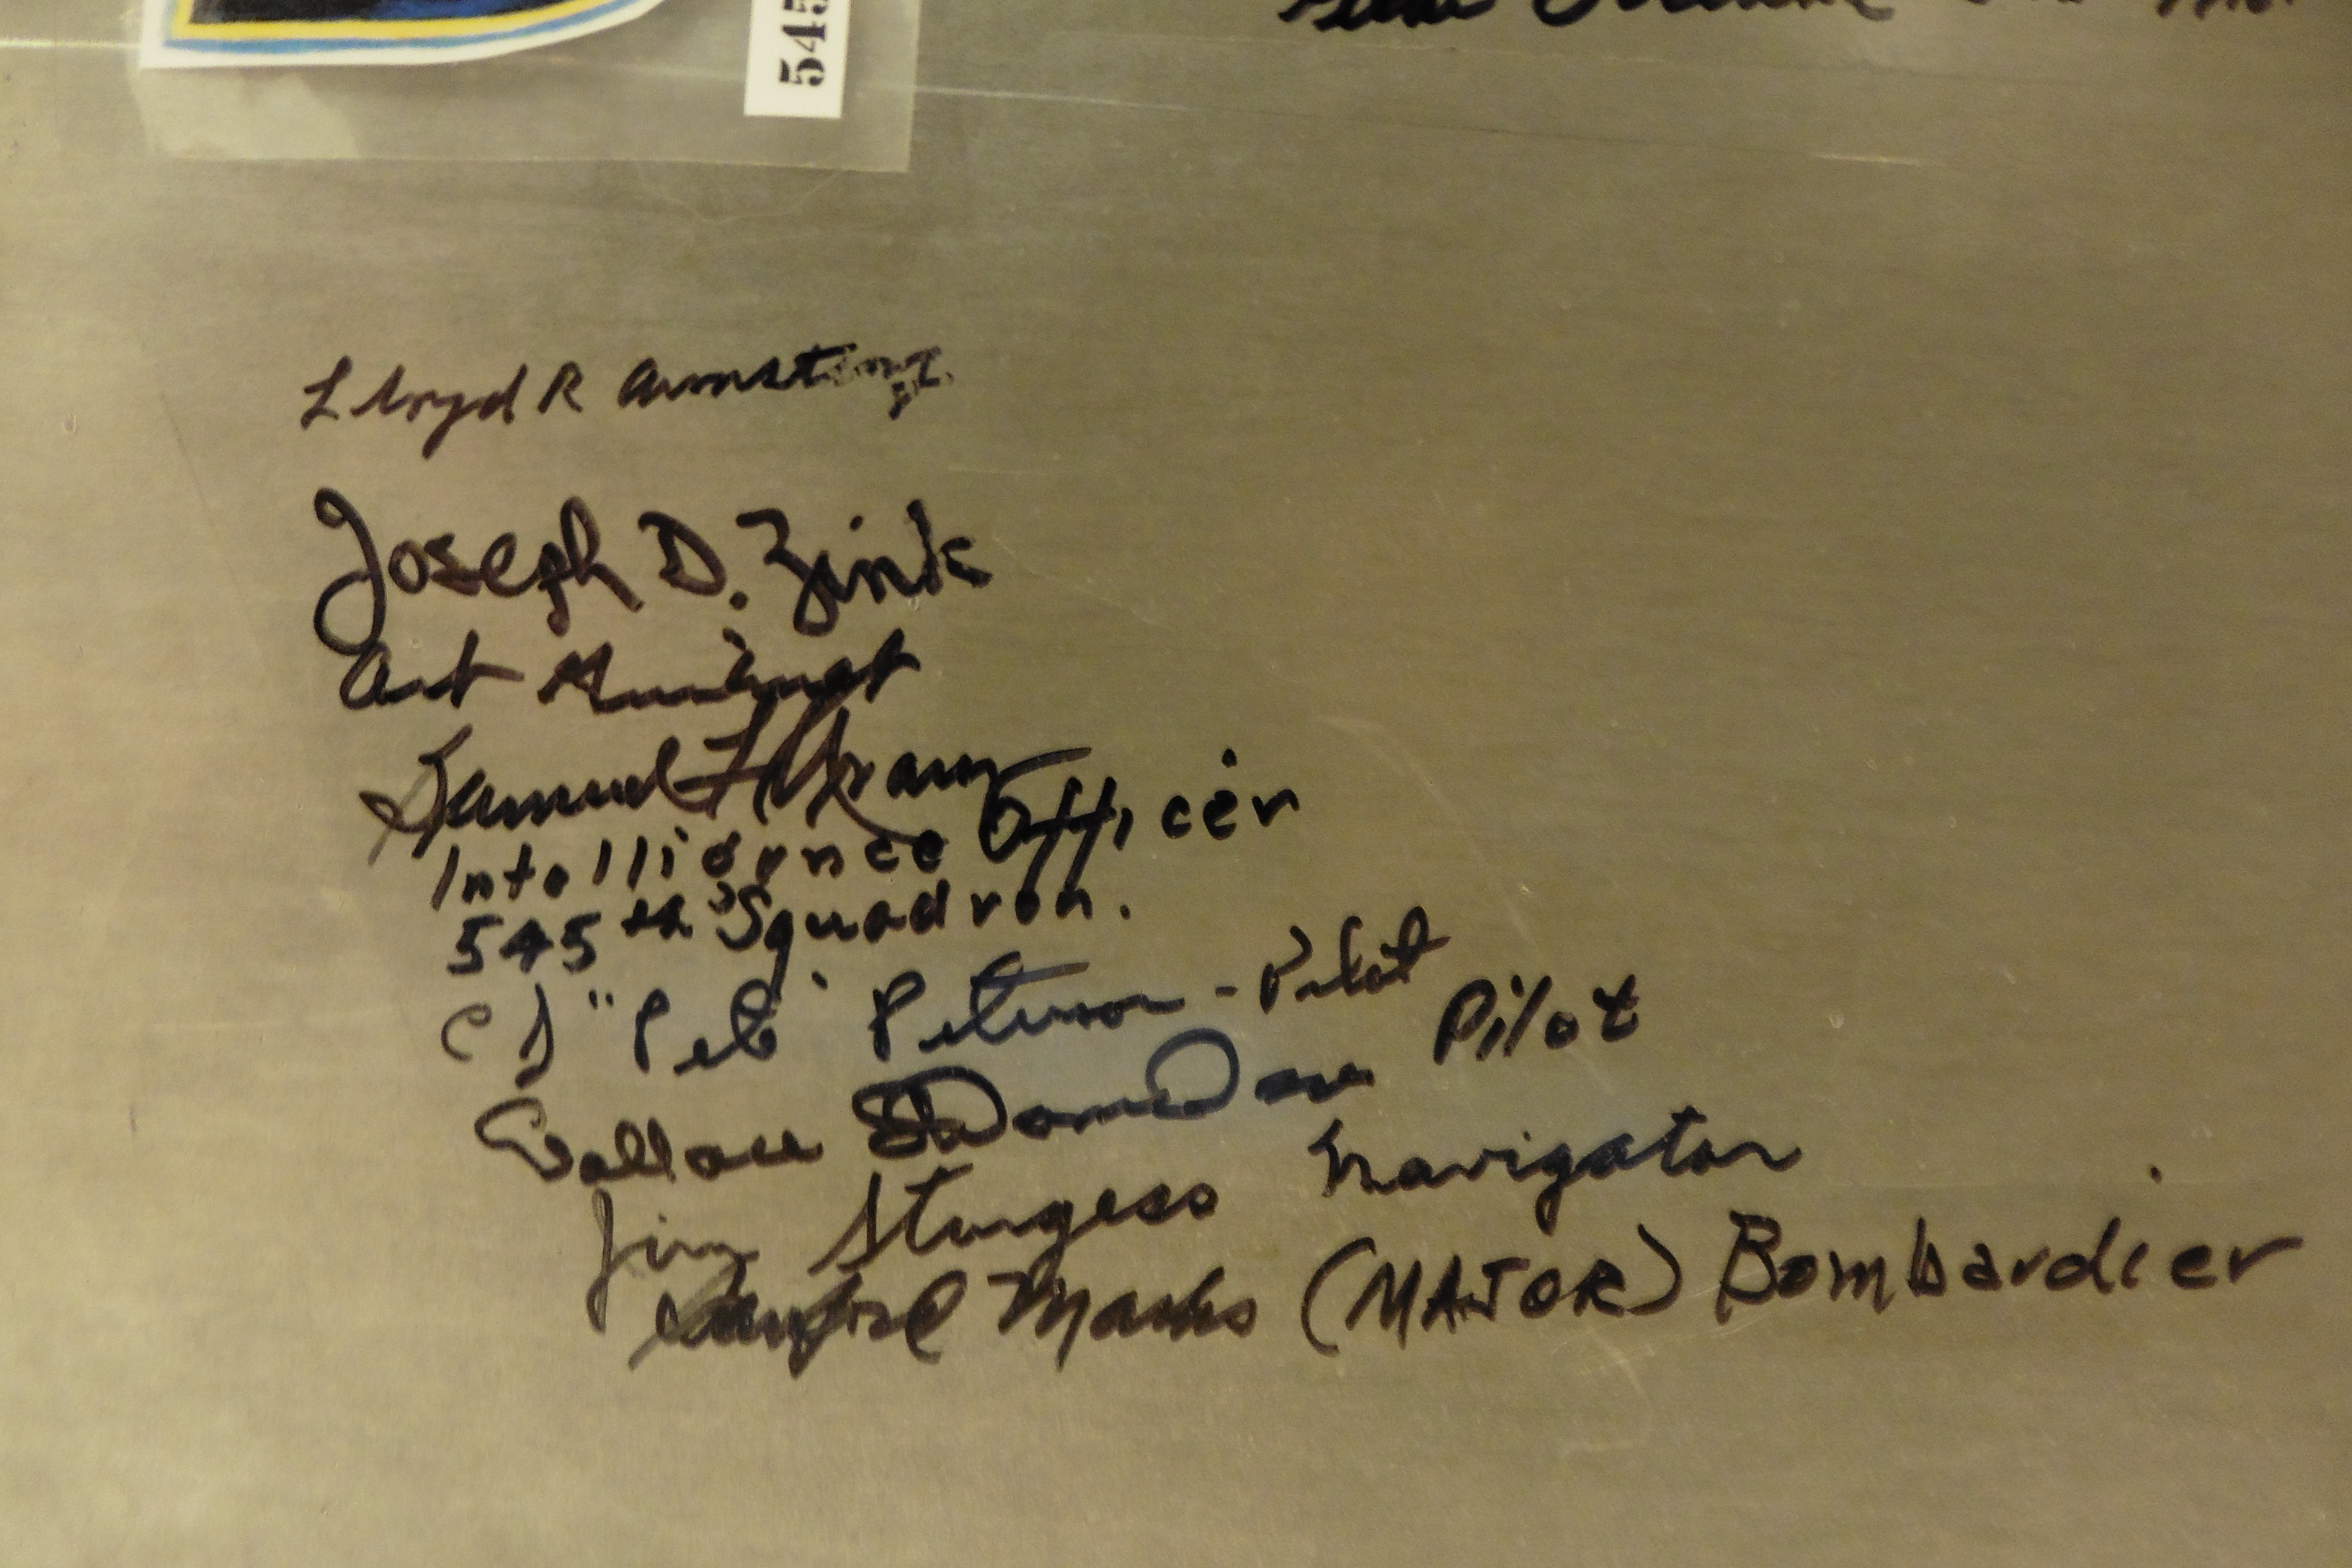 545
Lloyd R Armstrong
Joseph D. Zink
Art
Samuel
Intelligence Officer
545th Squadron.
C D "Pete" Peterson - Pilot
Wallace Pilot
Jim Sturgess Navigator
Sanford Marks (MAJOR) Bombardier